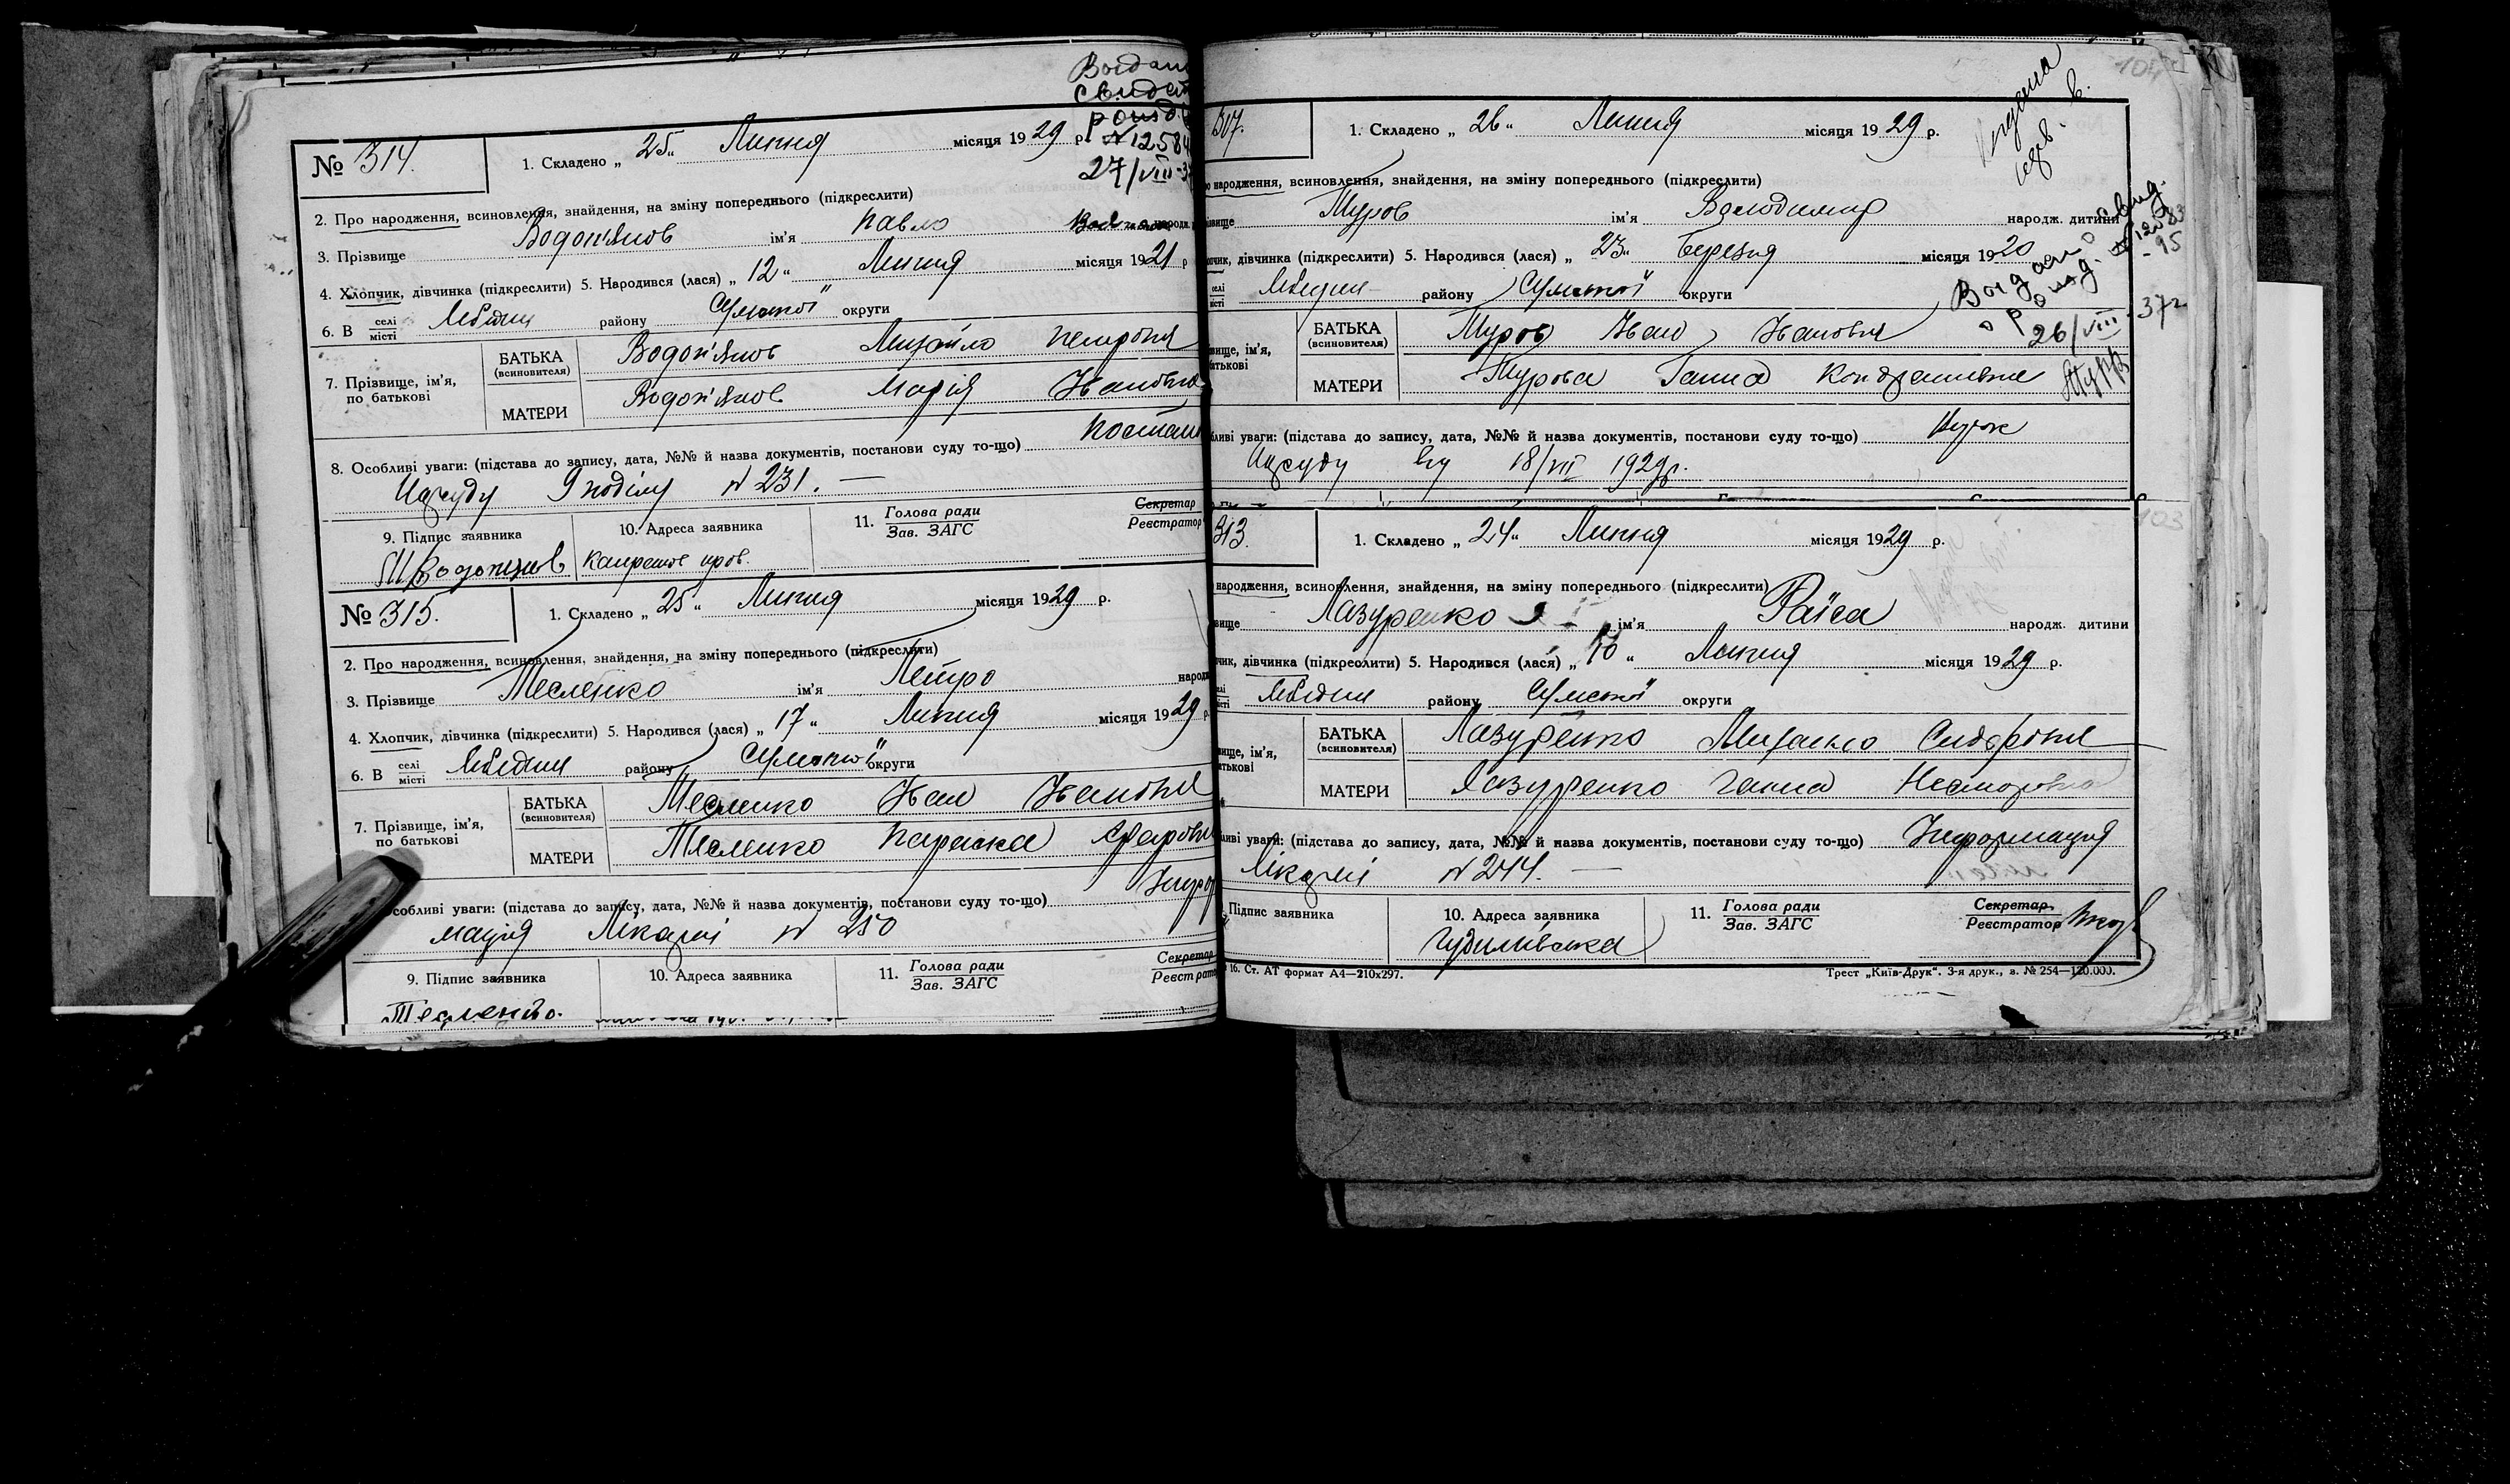 № 314.
1. Складено „ 25 “ Липня місяця 1929 р.
№ 12584
27/VIII-3
2. Про народження, всиновлення, знайдення, на зміну попереднього (підкреслити)
3. Прізвище Водоп'янов ім'я Павло народж.
4. Хлопчик, дівчинка (підкреслити) 5. Народився (лася) „ 12 “ Липня місяця 1921 р
6. В селі місті Лебедин району Сумської округи
7. Прізвище, ім'я, по батькові
БАТЬКА (всиновителя) Водоп'янов Михайло Петрович
МАТЕРИ Водоп'янов Марія Іванівна
8. Особливі уваги: (підстава до запису, дата, №№ й назва документів, постанови суду то-що) Постан
Нарсуду 9 поділу № 231. —
9. Підпис заявника
10. Адреса заявника
11. Голова ради Зав. ЗАГС
Секретар Реєстратор
М Водопянов
№ 315.
1. Складено „ 25 “ Липня місяця 1929 р.
2. Про народження, всиновлення, знайдення, на зміну попереднього (підкреслити)
3. Прізвище Тесленко ім'я Петро народж
4. Хлопчик, дівчинка (підкреслити) 5. Народився (лася) „ 17 “ Липня місяця 1929 р.
6. В селі місті Лебедин району Сумської округи
7. Прізвище, ім'я, по батькові
БАТЬКА (всиновителя) Тесленко Іван Іванович
МАТЕРИ Тесленко Параска
собливі уваги: (підстава до запису, дата, №№ й назва документів, постанови суду то-що) Інфор
мация Лікарні № 250
9. Підпис заявника
10. Адреса заявника
11. Голова ради Зав. ЗАГС
Секретар Реєстратор
Тесленко.
104
307.
1. Складено „ 26 “ Липня місяця 1929 р.
о народження, всиновлення, знайдення, на зміну попереднього (підкреслити)
ізвище Муров ім'я Володимир народж. дитини
пчик, дівчинка (підкреслити) 5. Народився (лася) „ 23 “ Березня місяця 1920
селі місті Лебедин району Сумської округи
Выдано свид.
о рожд. № 12583
- 95
26/VIII - 37 г
звище, ім'я, батькові
БАТЬКА (всиновителя) Муров Іван Іванович
МАТЕРИ Мурова Ганна Кондратівна
бливі уваги: (підстава до запису, дата, №№ й назва документів, постанови суду то-що)
Нарсуду від 18/VII 1929 р.
313.
103
1. Складено „ 24 “ Липня місяця 1929 р.
народження, всиновлення, знайдення, на зміну попереднього (підкреслити)
вище Лазуренко ім'я Раїса народж. дитини
чик, дівчинка (підкреслити) 5. Народився (лася) „ 10 “ Липня місяця 1929 р.
елі місті Лебедин району Сумської округи
вище, ім'я, атькові
БАТЬКА (всиновителя) Лазуренко Михайло Сидорович
МАТЕРИ Лазуренко Ганна Несторовна
ливі уваги: (підстава до запису, дата, №№ й назва документів, постанови суду то-що) Інформация
Лікарні № 244. —
Підпис заявника
10. Адреса заявника
11. Голова ради Зав. ЗАГС
Секретар Реєстратор
Будилівська
16. Ст. АТ формат А4—210х297.
Трест „Київ-Друк“. 3-я друк., з. № 254—120.000.